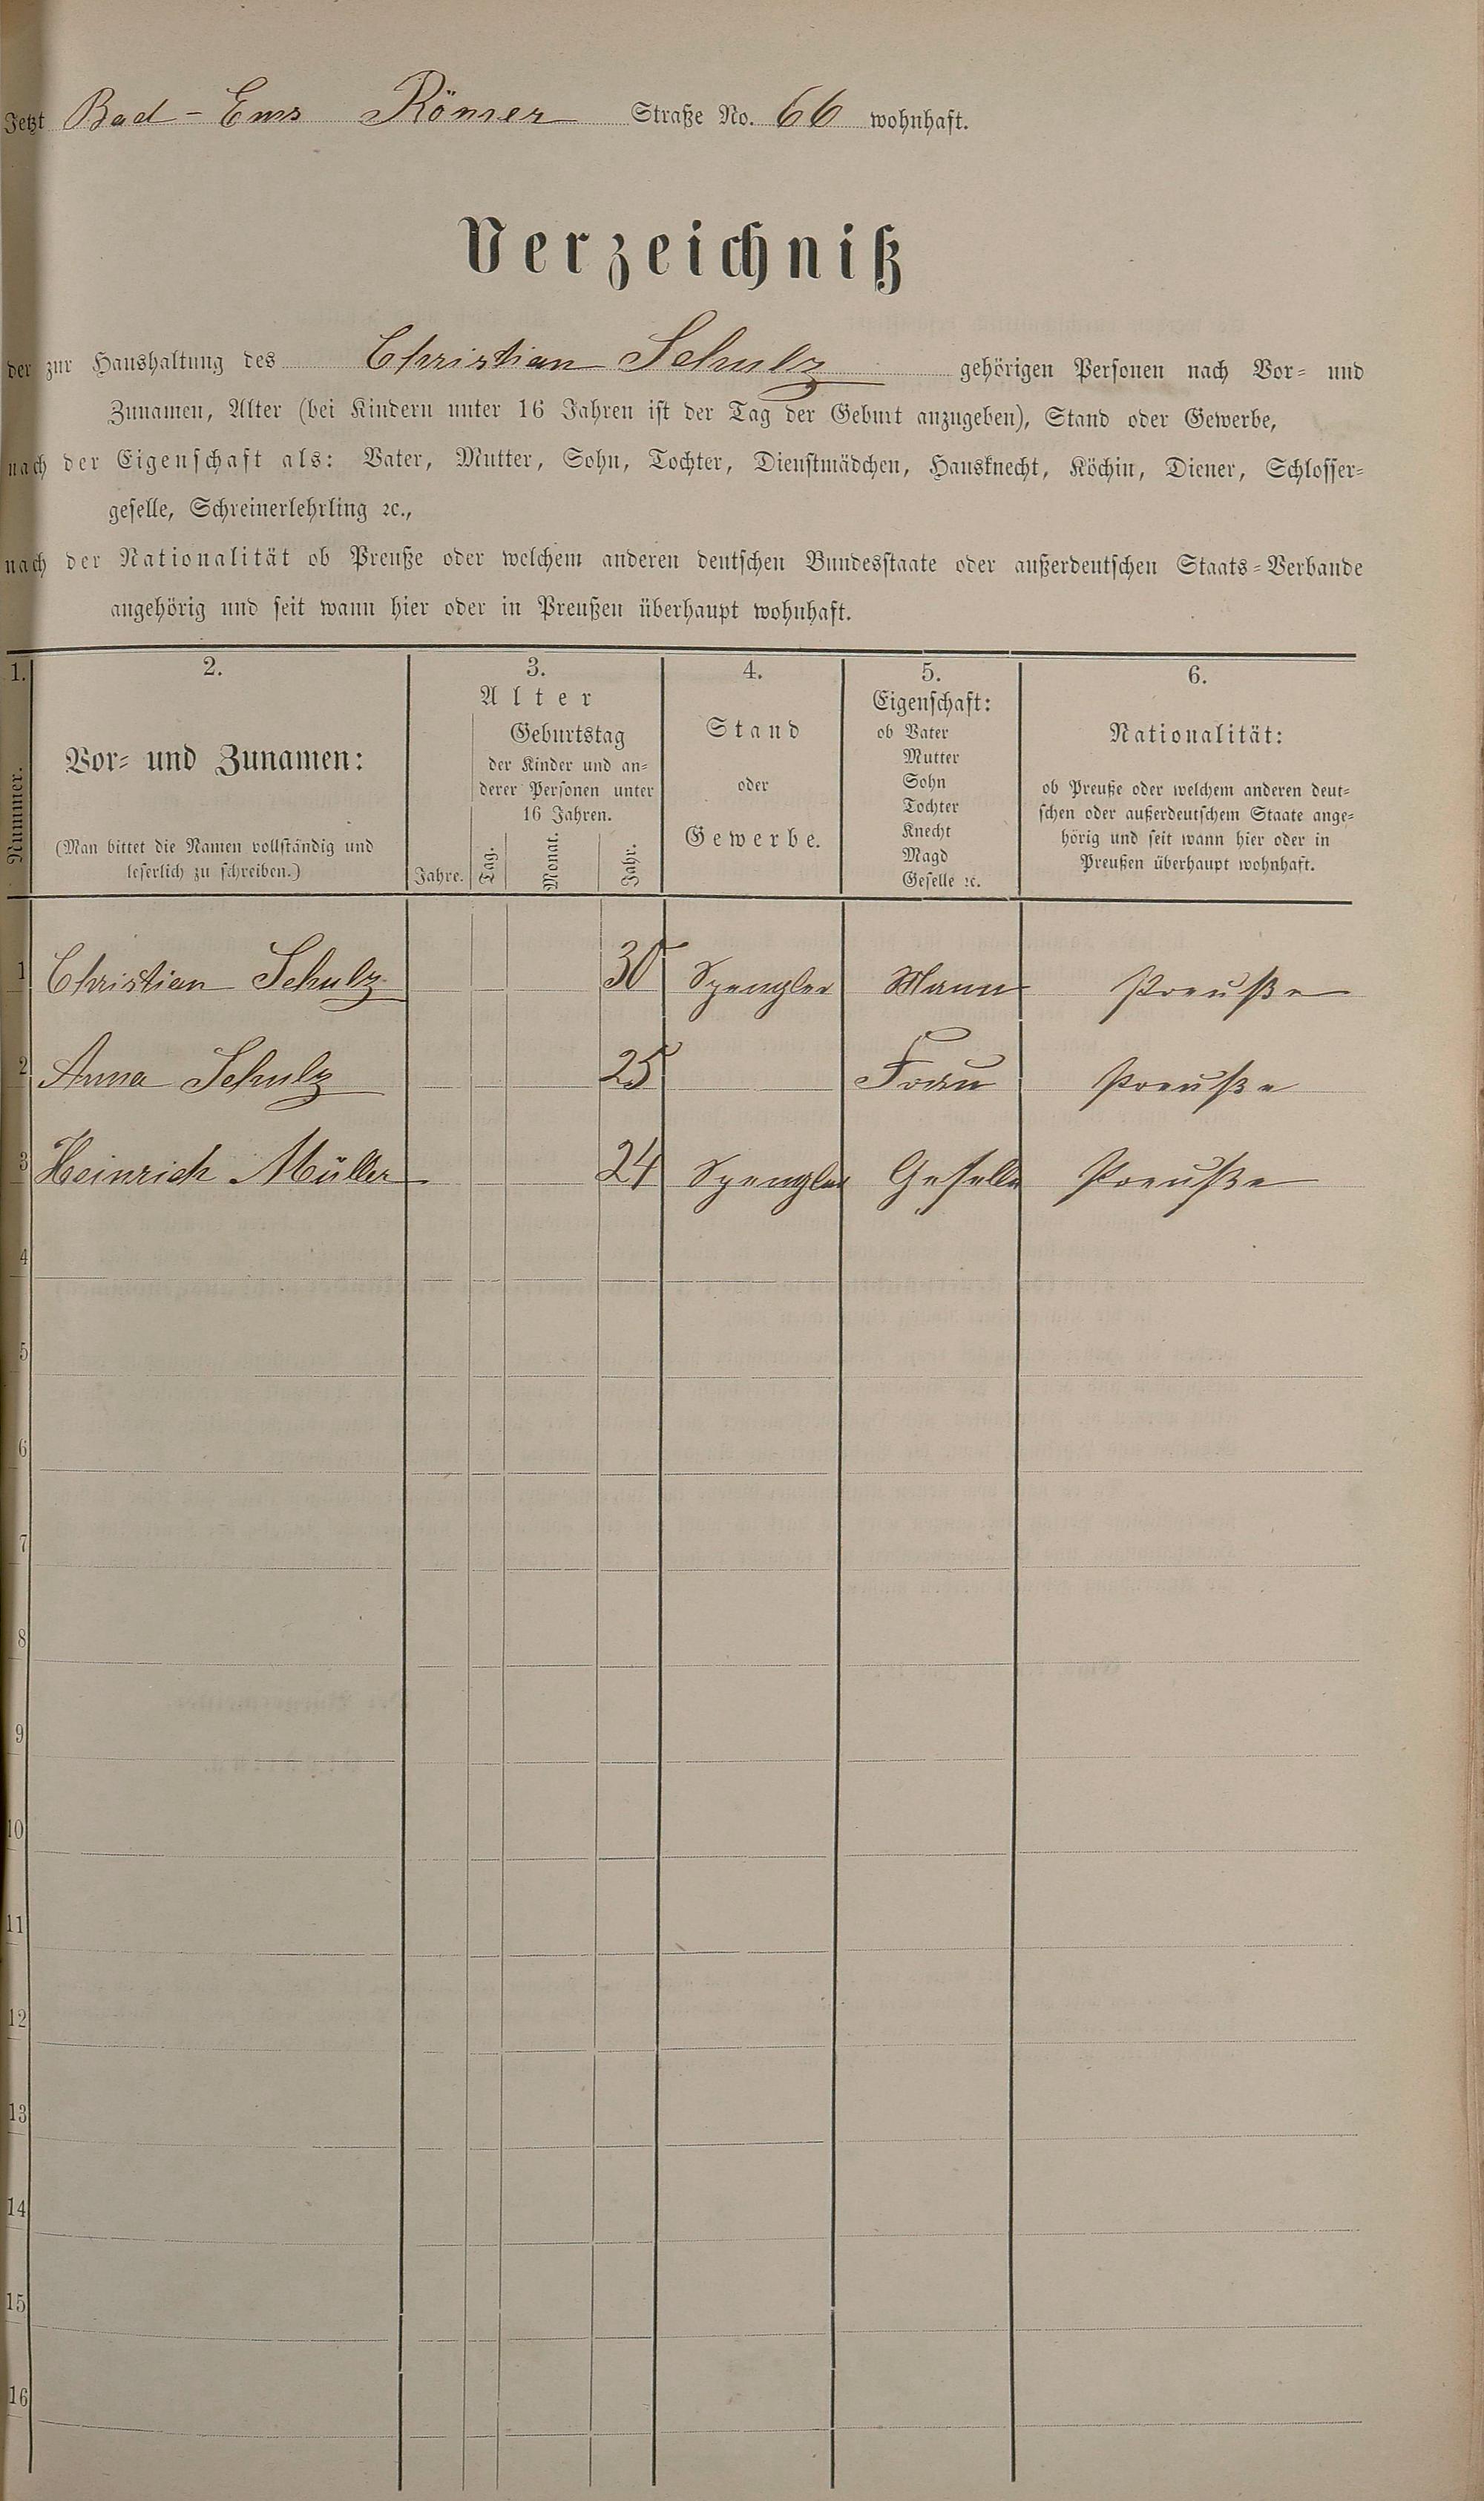 Jetzt Bad-Ems Römer Straße No. 66 wohnhaft.
Verzeichniß
der zur Haushaltung des Christian Schulz gehörigen Personen nach Vor- und
Zunamen, Alter (bei Kindern unter 16 Jahren ist der Tag der Geburt anzugeben), Stand oder Gewerbe,
nach der Eigenschaft als: Vater, Mutter, Sohn, Tochter, Dienstmädchen, Hausknecht, Köchin, Diener, Schlosser-
geselle, Schreinerlehrling ꝛc.,
nach der Nationalität ob Preuße oder welchem anderen deutschen Bundesstaate oder außerdeutschen Staats-Verbande
angehörig und seit wann hier oder in Preußen überhaupt wohnhaft.
1.
Nummer.
2.
Vor- und Zunamen:
(Man bittet die Namen vollständig und
leserlich zu schreiben.)
3.
Alter
Jahre.
Geburtstag
der Kinder und an-
derer Personen unter
16 Jahren.
Tag.
Monat.
Jahr.
4.
Stand
oder
Gewerbe.
5.
Eigenschaft:
ob Vater
Mutter
Sohn
Tochter
Knecht
Magd
Geselle ꝛc.
6.
Nationalität:
ob Preuße oder welchem anderen deut-
schen oder außerdeutschem Staate ange-
hörig und seit wann hier oder in
Preußen überhaupt wohnhaft.
1 Christian Schulz Spengler Mann Preuße
2 Anna Schulz 25 Frau Preuße
3 Heinrich Müller 24 Spengler Geselle Preuße
4
5
6
7
8
9
10
11
12
13
14
15
16